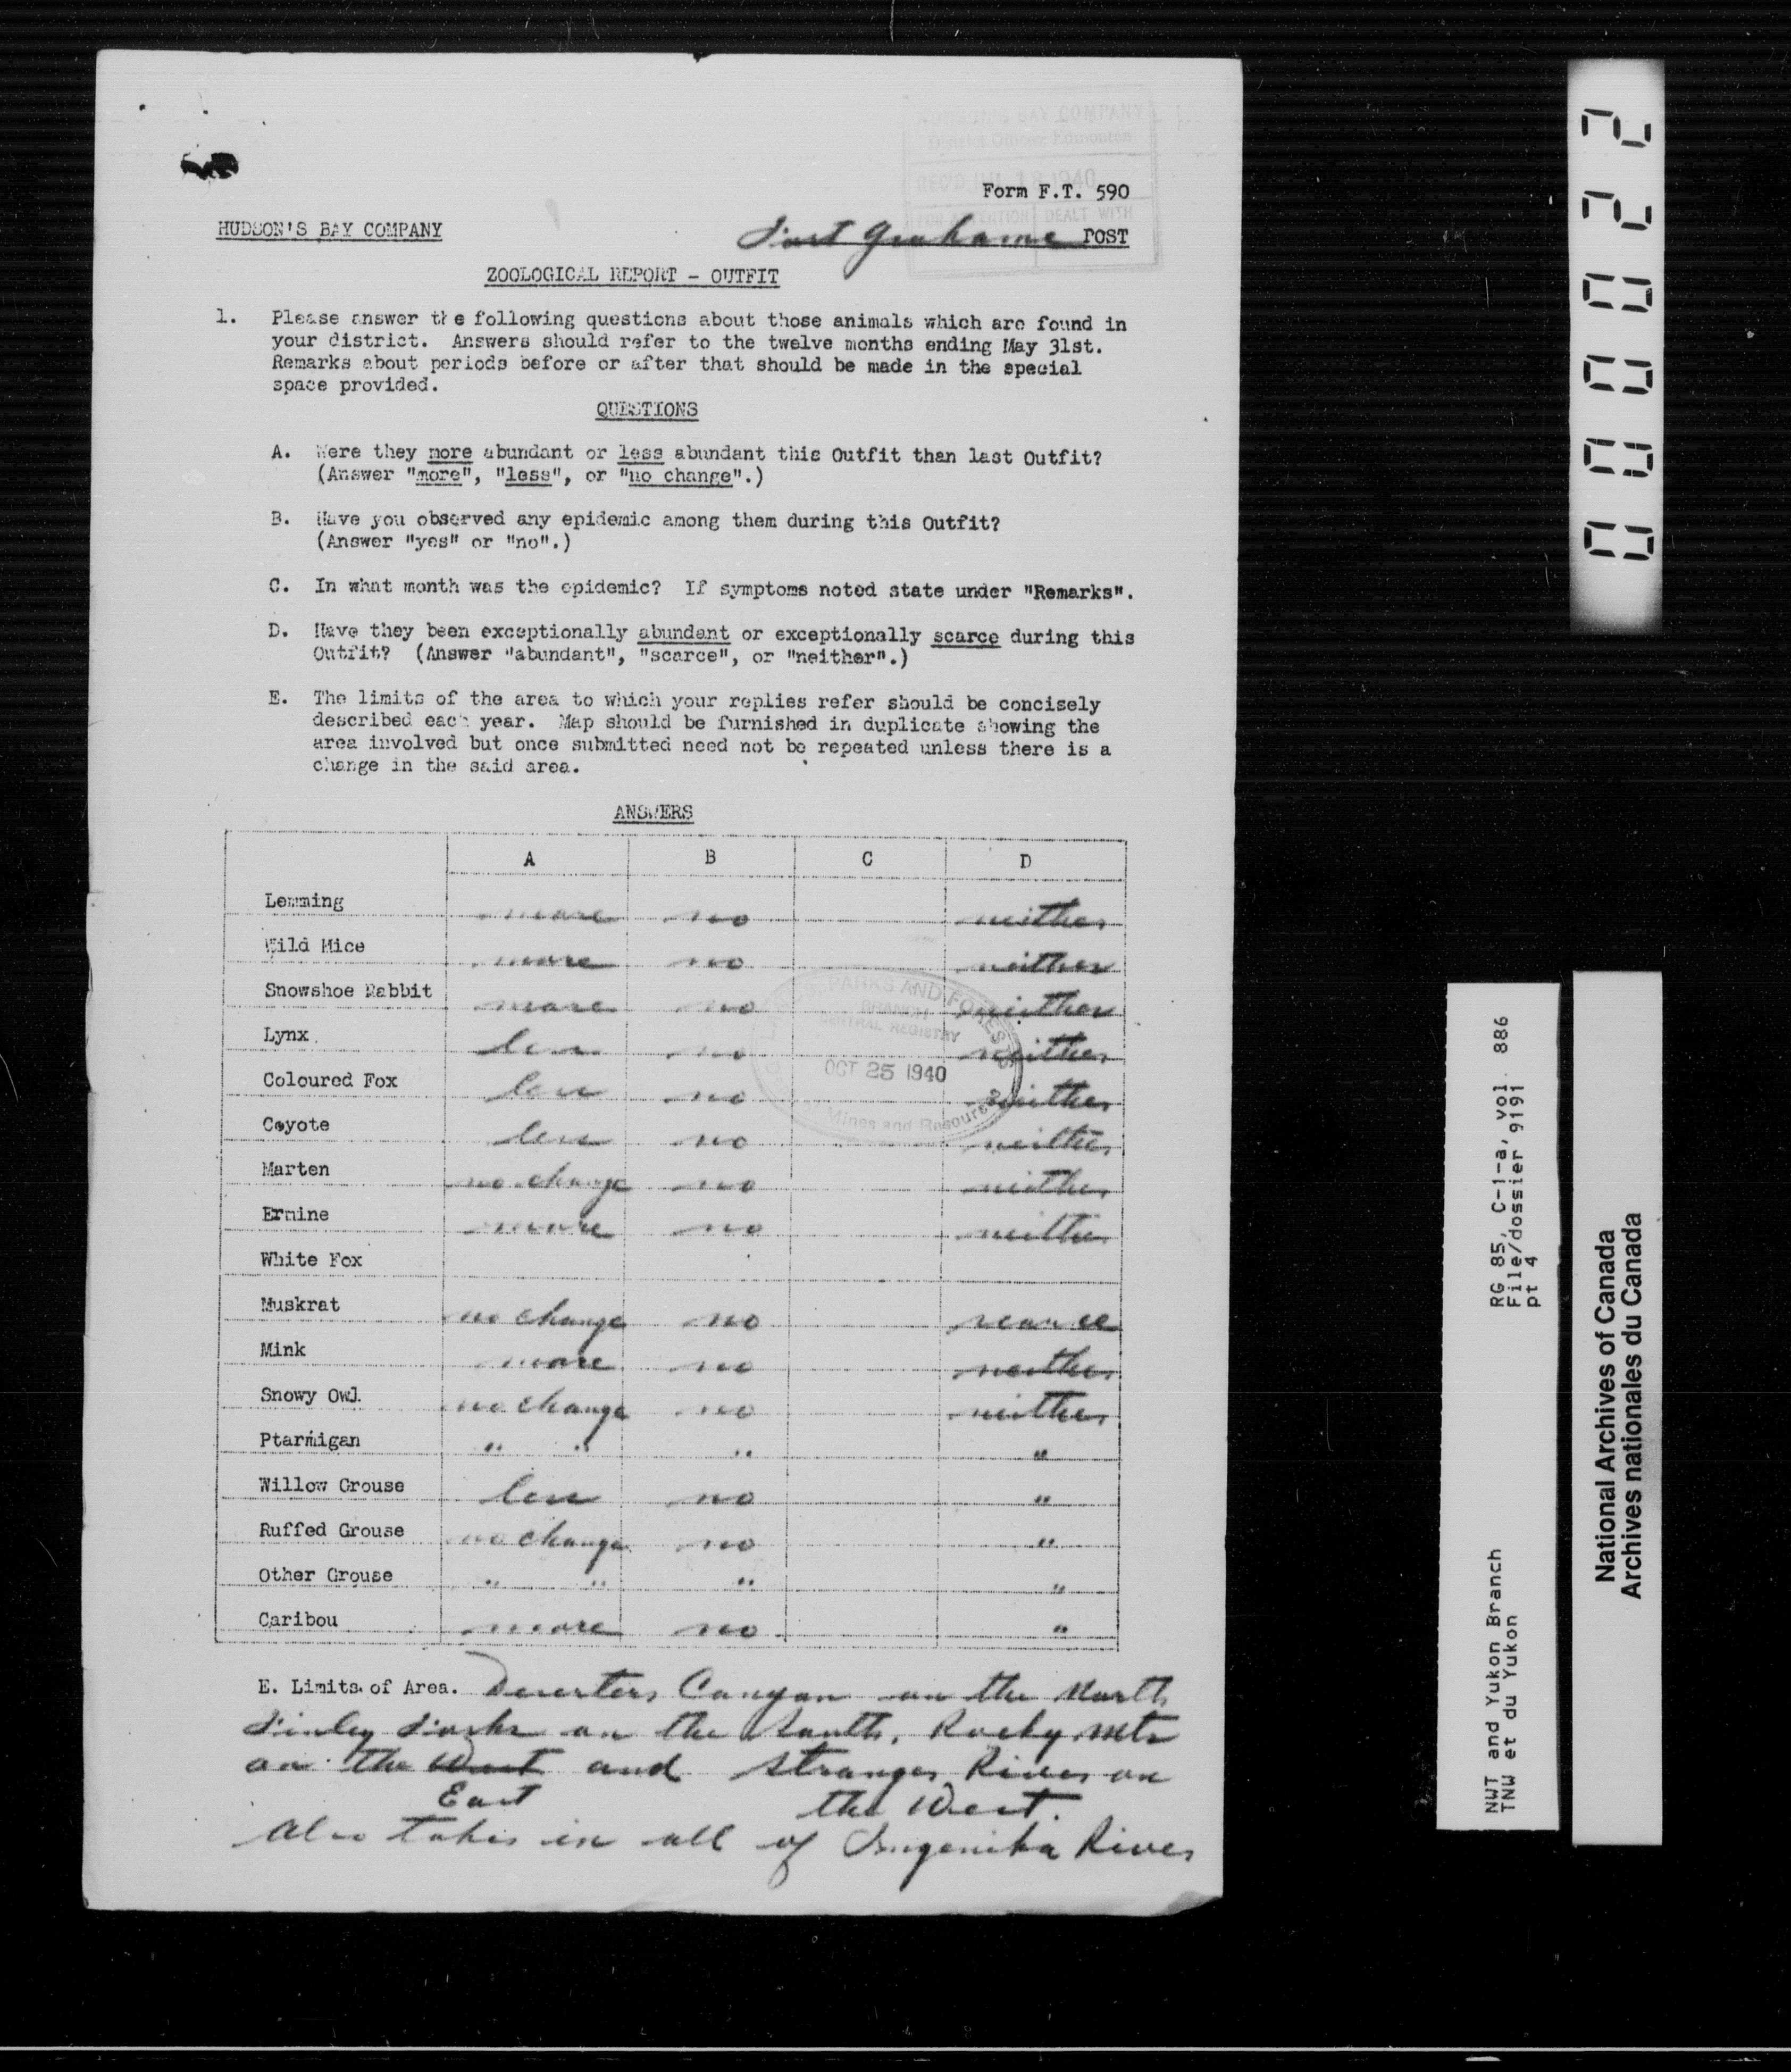 HUDSON'S BAY COMPANY
District Office, Edmonton
REC'D JUL 18 1940
FOR ATTENTION DEALT WITH
Form F.T. 590
HUDSON'S BAY COMPANY
Fort Grahame POST
ZOOLOGICAL REPORT - OUTFIT
1. Please answer the following questions about those animals which are found in
your district. Answers should refer to the twelve months ending May 31st.
Remarks about periods before or after that should be made in the special
space provided.
QUESTIONS
A. Were they more abundant or less abundant this Outfit than last Outfit?
(Answer "more", "less", or "no change".)
B. Have you observed any epidemic among them during this Outfit?
(Answer "yes" or "no".)
C. In what month was the epidemic? If symptoms noted state under "Remarks".
D. Have they been exceptionally abundant or exceptionally scarce during this
Outfit? (Answer "abundant", "scarce", or "neither".)
E. The limits of the area to which your replies refer should be concisely
described each year. Map should be furnished in duplicate showing the
area involved but once submitted need not be repeated unless there is a
change in the said area.
ANSWERS
A B C D
Lemming more no neither
Wild Mice more no neither
Snowshoe Rabbit more no neither
Lynx less no neither
Coloured Fox less no neither
Coyote less no neither
Marten no change no neither
Ermine more no neither
White Fox
Muskrat no change no scarce
Mink more no neither
Snowy Owl no change no neither
Ptarmigan " " " "
Willow Grouse less no "
Ruffed Grouse no change no "
Other Grouse " " " "
Caribou more no "
PARKS AND FORESTS
BRANCH
CENTRAL REGISTRY
OCT 25 1940
Mines and Resources
E. Limits of Area. Deserters Canyon on the North
Finley Forks on the South, Rocky Mts
on the West and Stranger River on
East the West.
Also takes in all of Ingenika River
000022
RG 85, C-1-a, vol. 886
File/dossier 9191
pt 4
NWT and Yukon Branch
TNW et du Yukon
National Archives of Canada
Archives nationales du Canada